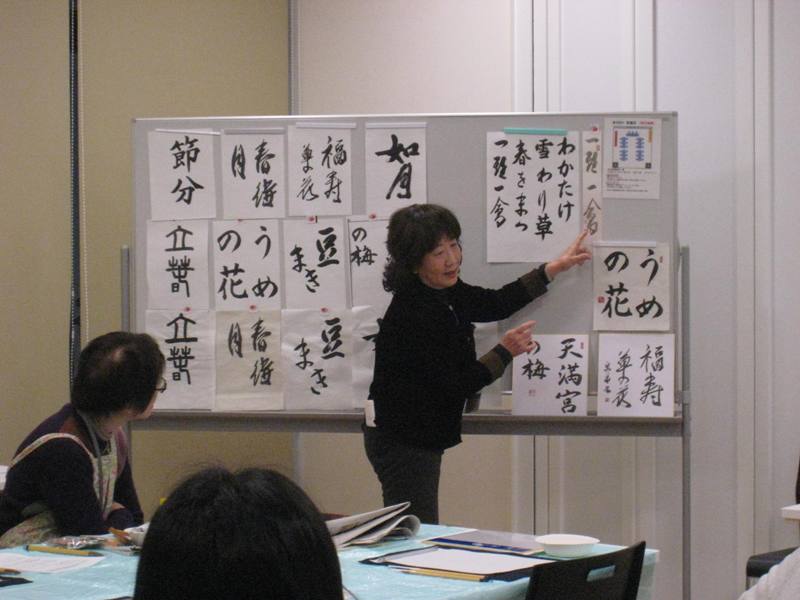 節分
春待月
福寿
草の花
如月
わかたけ
雪わり草
春をまつ
一期一会
一期一会
立春
うめ
の花
豆
まき
の梅
うめ
の花
立春
春待
月
豆
まき
天満宮
の梅
福寿
草の花